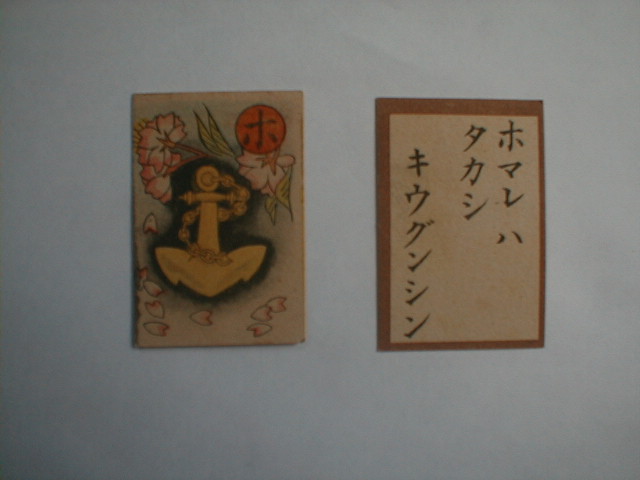 ホ
ホマレハ
タカシ
キウグンシン